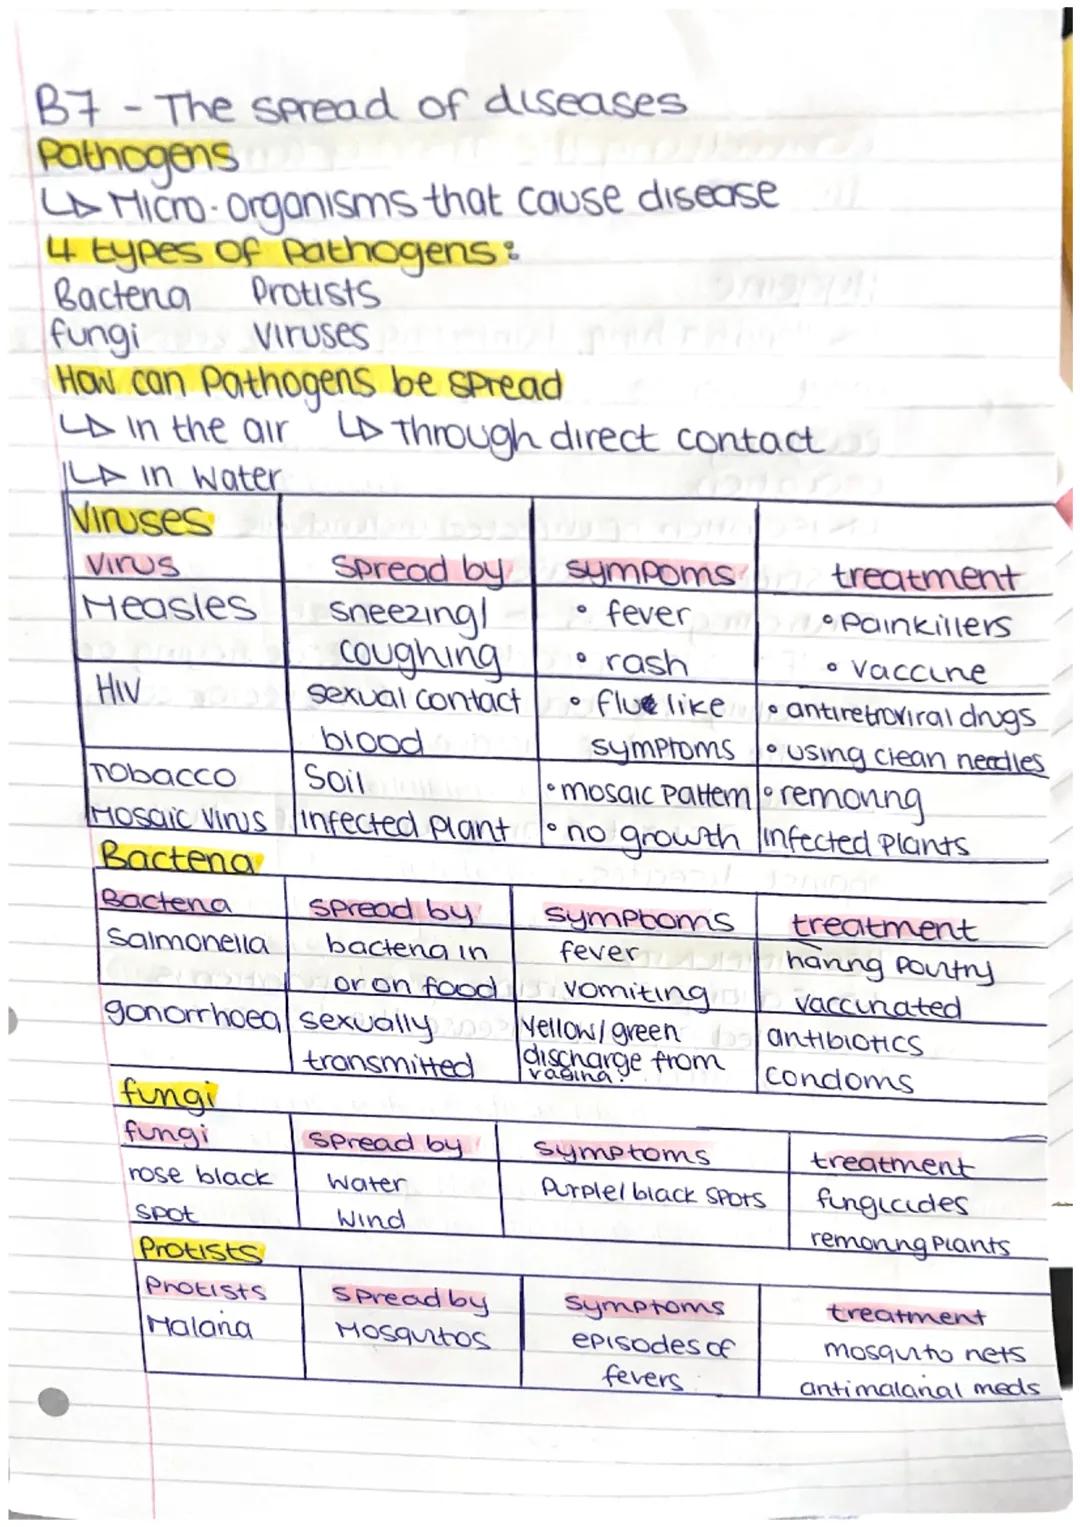 B7 - The spread of diseases
Pathogens
↳ Micro-organisms that cause disease
4 types of Pathogens:
Bacteria Protists
fungi Viruses
How can Pathogens be spread
↳ In the air ↳ Through direct contact
↳ in water
Viruses
Virus Spread by sympoms treatment
Measles sneezing/ • fever • Painkillers
coughing • rash • vaccine
HIV sexual contact • flue like • antiretroviral drugs
blood symptoms • using clean needles
Tobacco Soil • mosaic Pattern • removing
Mosaic Virus infected plant • no growth infected Plants
Bacteria
Bacteria spread by symptoms treatment
Salmonella bacteria in fever having Poultry
or on food vomiting vaccinated
gonorrhoea sexually Yellow/green antibiotics
transmitted discharge from condoms
vagina.
fungi
fungi spread by symptoms treatment
rose black water Purple/black spots fungicides
spot wind removing Plants
Protists
Protists spread by symptoms treatment
Malaria Mosquitos episodes of mosquito nets
fevers antimalarial meds